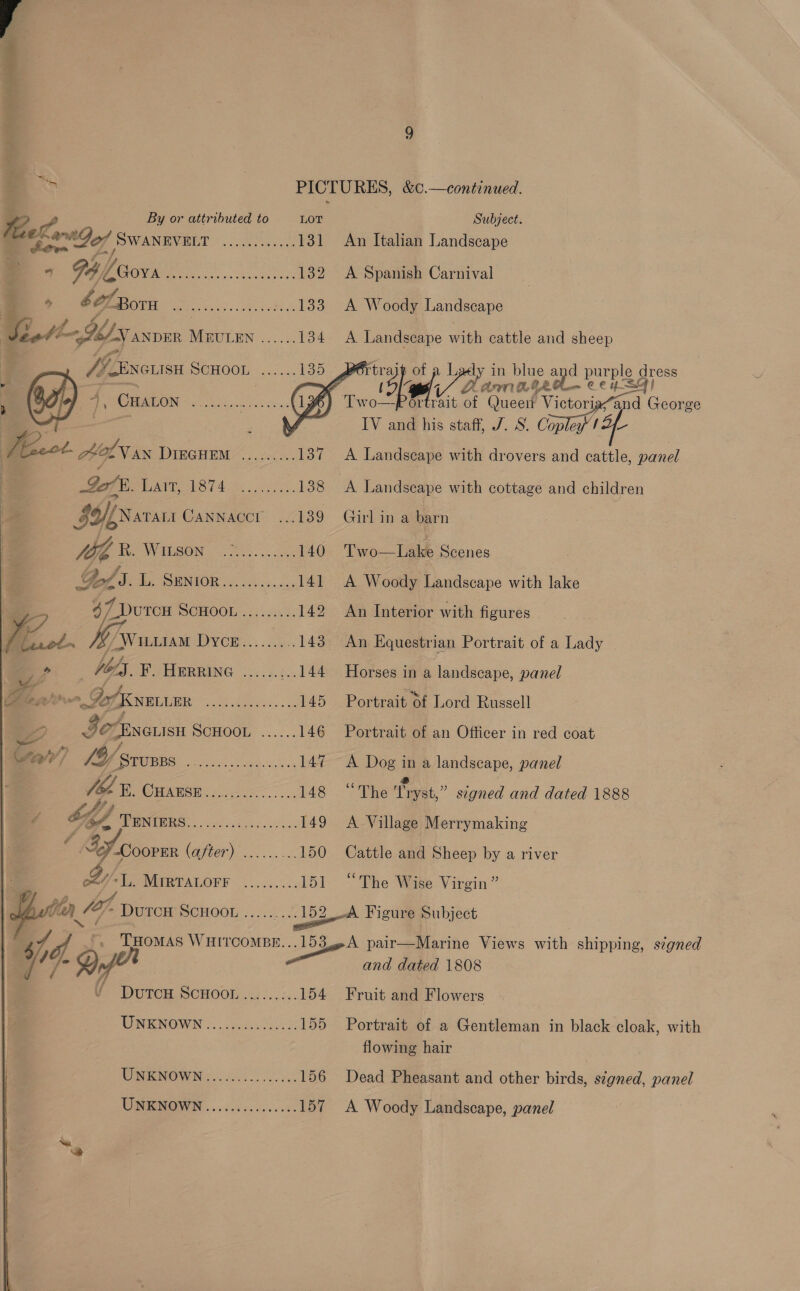 9
PICTURES, &c.—continued.
By or attributed to LOT Subject.
SWANEVELT ............ 131 An Italian Landscape
GOYA ........................ 132 A Spanish Carnival
BOTH ........................ 133 A Woody Landscape
VANDER MEULEN ...... 134 A Landscape with cattle and sheep
ENGLISH SCHOOL ...... 135 Portrait of a Lady in blue and purple dress
damaged
CHALON .................. 136 Two—Portrait of Queen Victoria and George
IV and his staff, J. S. Copley
VAN DIEGHEM ......... 137 A Landscape with drovers and cattle, panel
E. LAIT, 1874 ......... 138 A Landscape with cottage and children
NATALI CANNACCI ... 139 Girl in a barn
R. WILSON ............ 140 Two—Lake Scenes
J. L. SENIOR ............ 141 A Woody Landscape with lake
DUTCH SCHOOL ......... 142 An Interior with figures
WILLIAM DYCE ......... 143 An Equestrian Portrait of a Lady
J. F. HERRING ......... 144 Horses in a landscape, panel
KNELLER ............... 145 Portrait of Lord Russell
ENGLISH SCHOOL ...... 146 Portrait of an Officer in red coat
STUBBS .................. 147 A Dog in a landscape, panel
E. CHAESE ............... 148 "The Tryst," signed and dated 1888
TENIERS .................. 149 A Village Merrymaking
COOPER (after) ......... 150 Cattle and Sheep by a river
L. MIRTALOFF ......... 151 "The Wise Virgin"
DUTCH SCHOOL ......... 152 A Figure Subject
THOMAS WHITCOMBE... 153 A pair—Marine Views with shipping, signed
and dated 1808
DUTCH SCHOOL ......... 154 Fruit and Flowers
UNKNOWN ............... 155 Portrait of a Gentleman in black cloak, with
flowing hair
UNKNOWN ............... 156 Dead Pheasant and other birds, signed, panel
UNKNOWN ............... 157 A Woody Landscape, panel